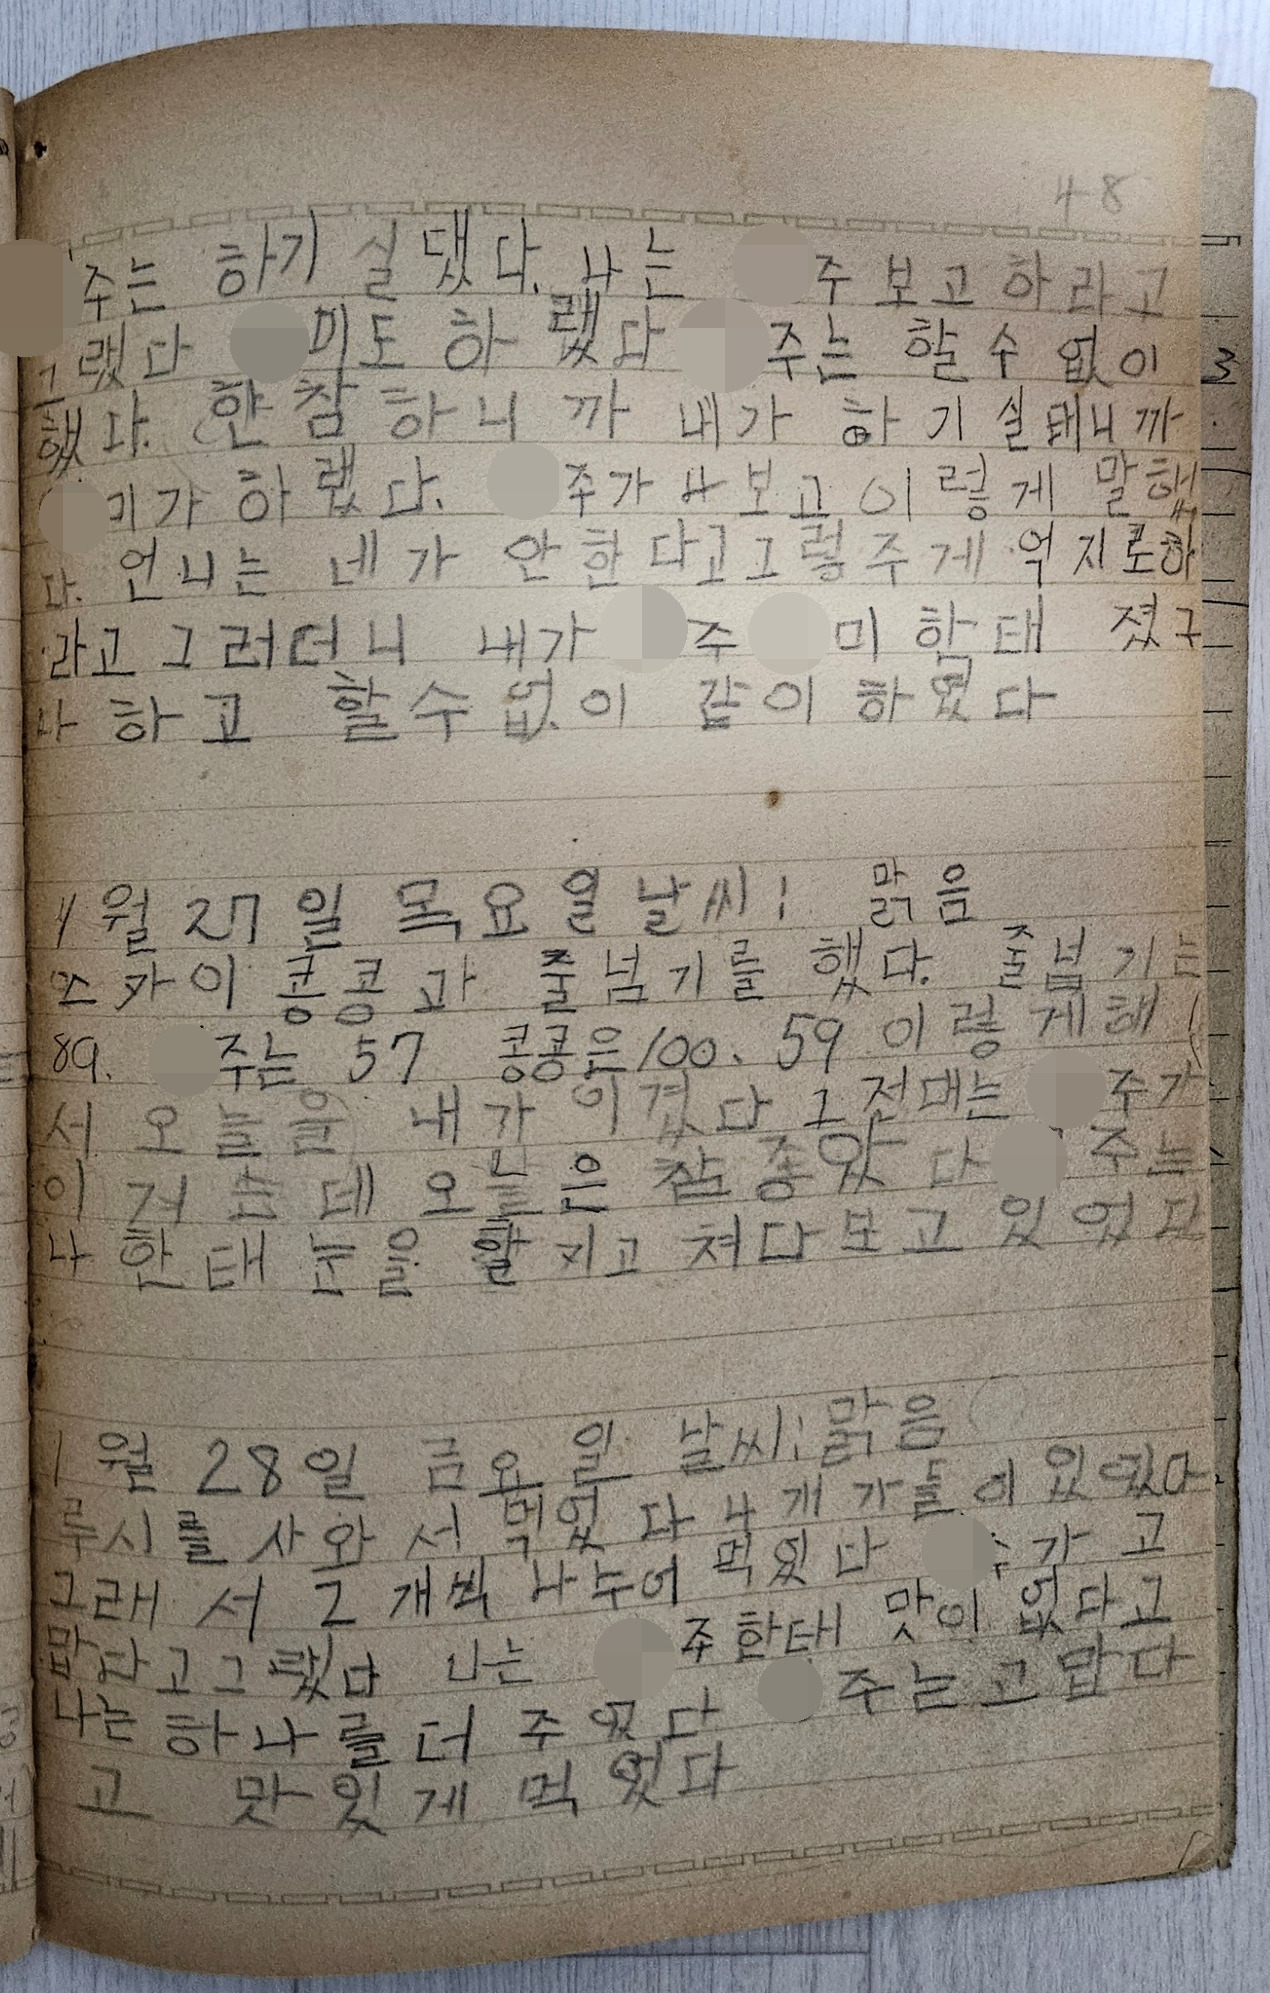 48
주는 하기 실댔다. 나는 주보고 하라고
그랬다 미도 하랬다 주는 할수없이
했다. 한참하니까 내가 하기실태니까
미가 하랬다. 주가 나보고 이렇게 말했
다. 언니는 네가 안한다고그렇주게 억지로하
라고 그러더니 내가 주 미한태 졌구
나 하고 할수없이 같이 하였다
4월 27일 목요일 날씨: 맑음
스카이콩콩과 줄넘기를 했다. 줄넙기는
89. 주는 57 콩콩은100. 59 이렇게해
서 오늘을 내가 이겼다 그전대는 주가
이겨는데 오늘은 참좋았다 주는
나한태 눈을 할키고 쳐다보고 있었다
월 28일 금요일 날씨:맑음
루시를 사와서 먹었다 4개가들이 있였다
그래서 2개씩 나누어 먹었다 가 고
맙다고그랬다 나는 주한태 맛이 없다고
나는 하나를더 주었다 주는고맙다
고 맛있게 먹었다